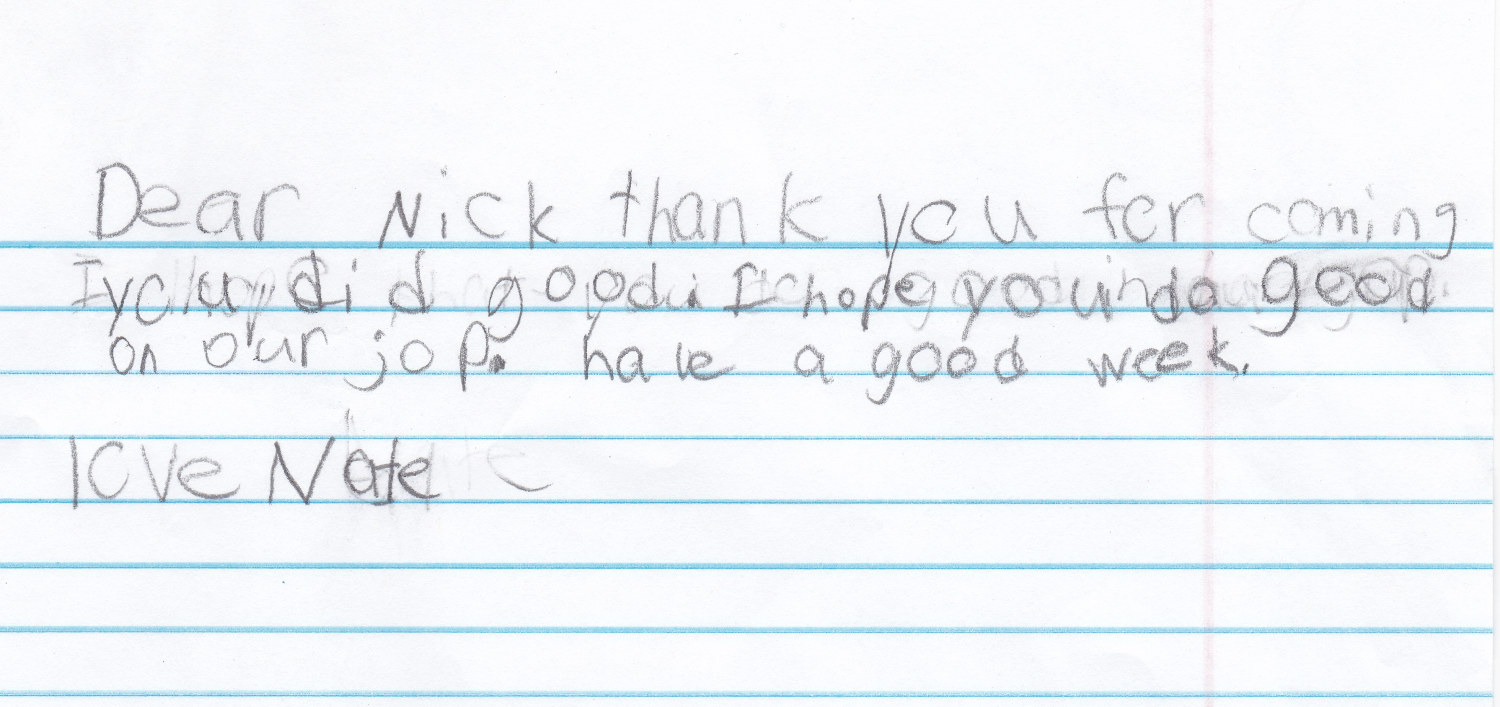 Dear Nick thank you for coming
you did good. I hope you do good
on our jop. have a good week.
love Nate